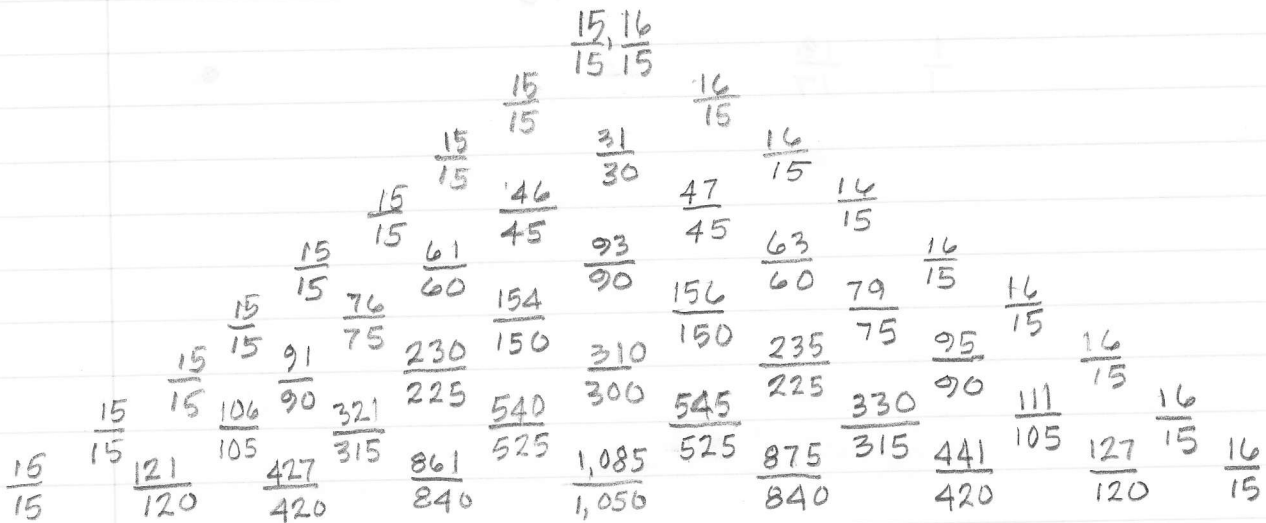 15/15, 16/15
15/15 16/15
15/15 31/30 16/15
15/15 46/45 47/45 16/15
15/15 61/60 93/90 63/60 16/15
15/15 76/75 154/150 156/150 79/75 16/15
15/15 91/90 230/225 310/300 235/225 95/90 16/15
15/15 106/105 321/315 540/525 545/525 330/315 111/105 16/15
15/15 121/120 427/420 861/840 1,085/1,050 875/840 441/420 127/120 16/15